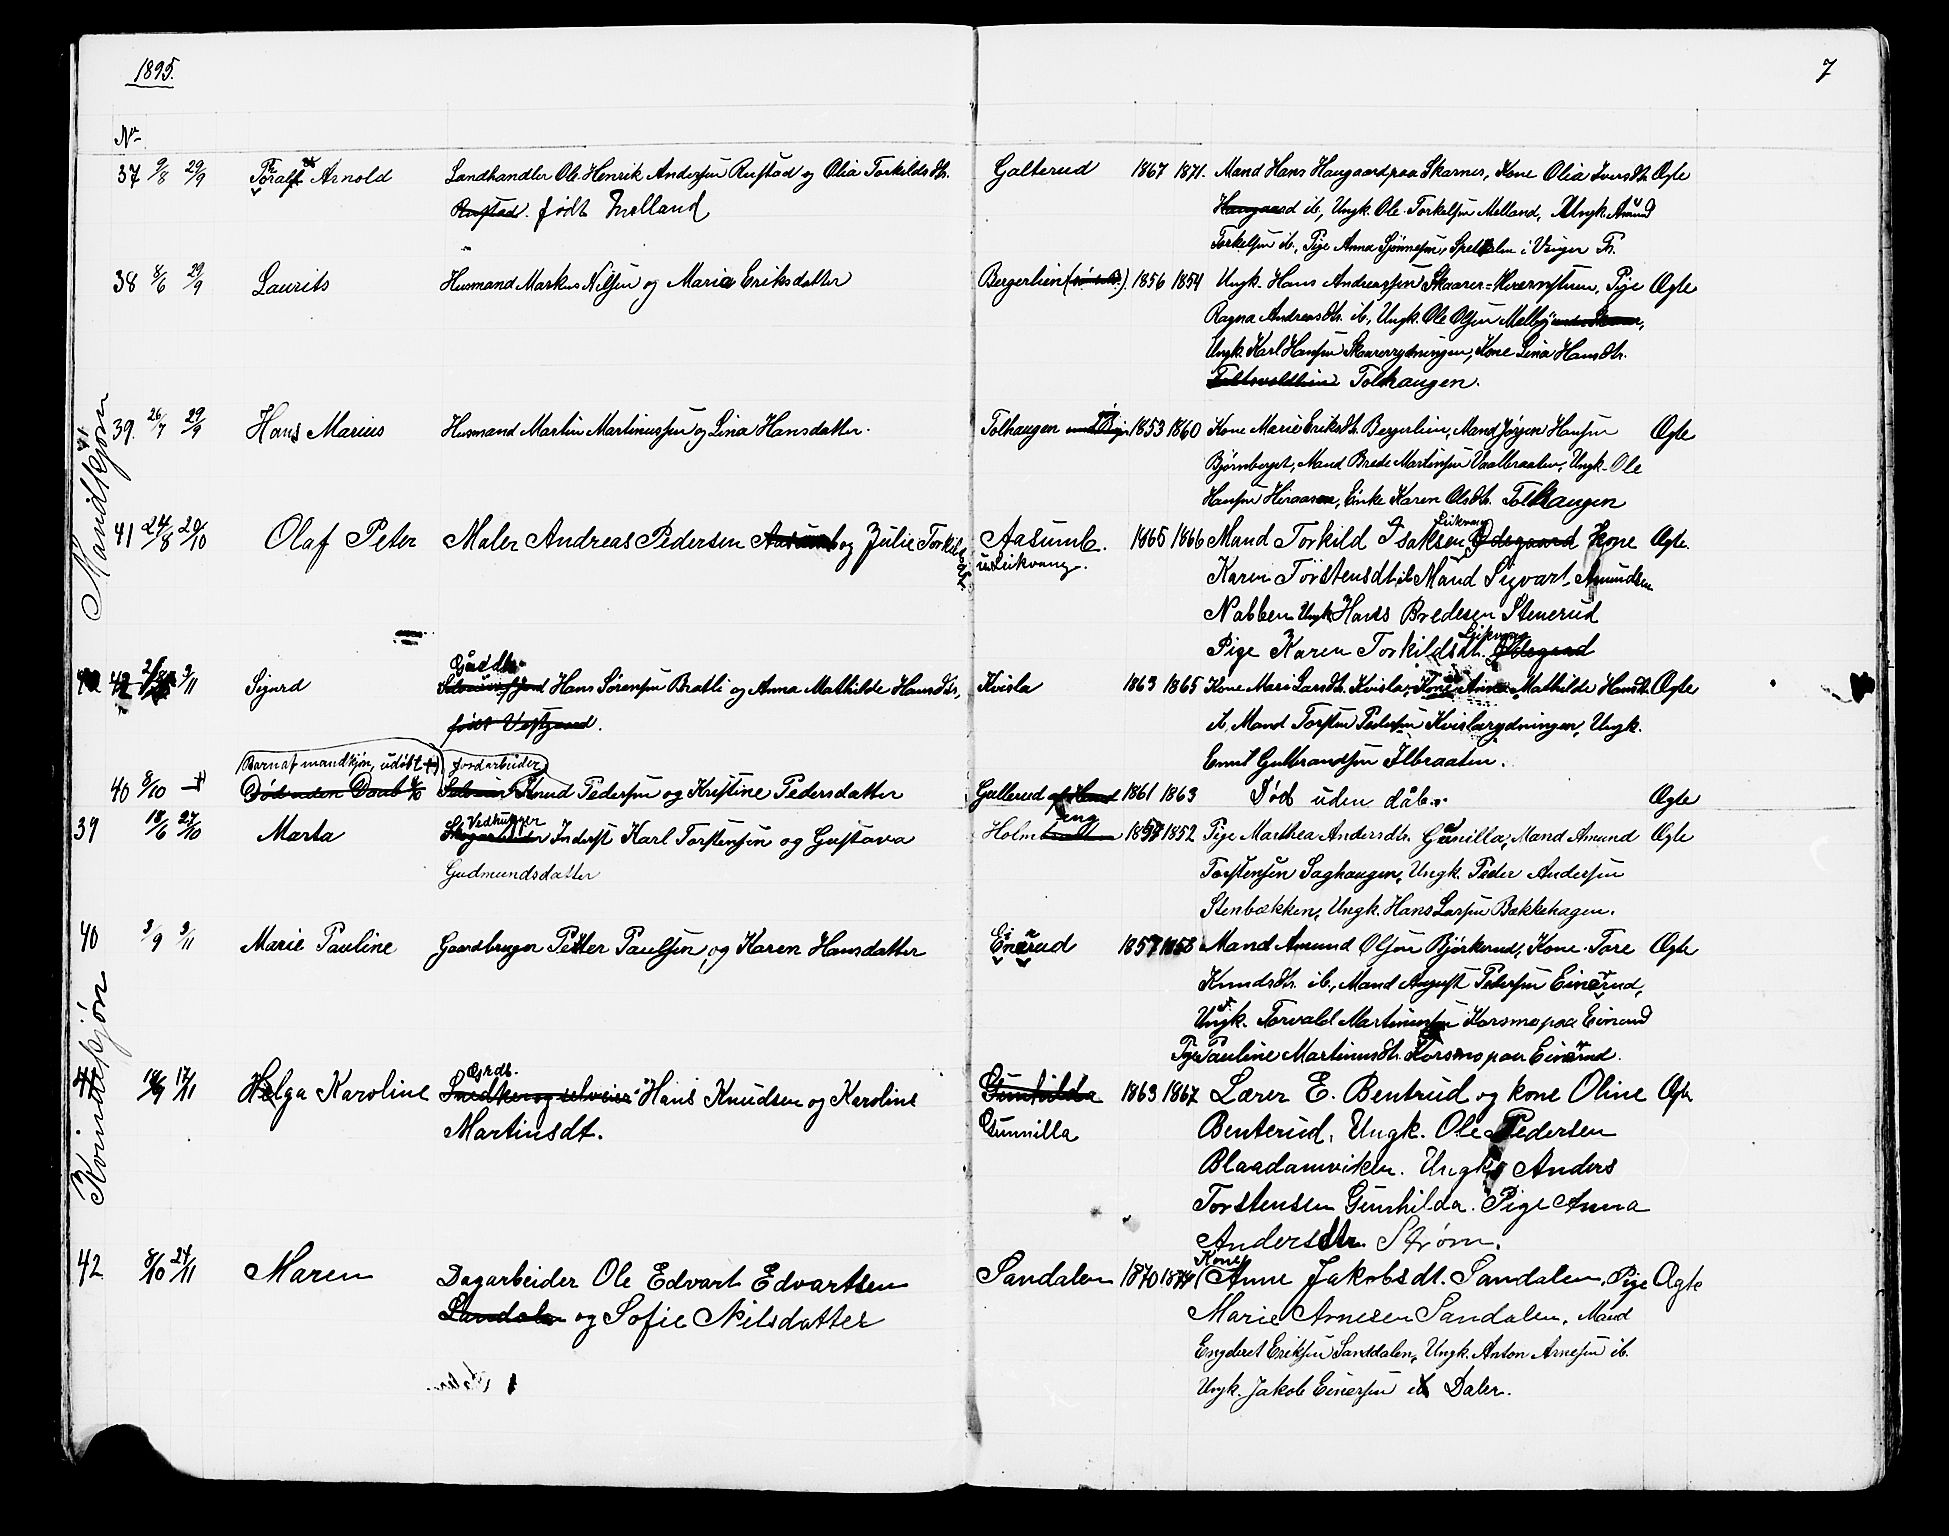 1895.
7
No
Mandkjøn
37 9/8 29/9 Thoralf Arnold Landhandler Ole Henrik Andersen Rustad og Olia Torkildsdtr. Galterud 1867 1871. Mand Hans Haugaard paa Skarnes, Kone Olia Iversdtr. Ægte
Rustad. født Melland Haugaard ib., Ungk. Ole Torkelsen Melland, Ungk. Amund
Torkelsen ib., Pige Anna Spetalen i Vinger Pr.
38 8/6 29/9 Laurits Husmand Markus Nilsen og Maria Eriksdatter Bergerlien 1856 1854 Ungk. Hans Andreassen Skaarer=Kværnstuen, Pige Ægte
Ragna Andreasdtr. ib., Ungk. Ole Olsen Melby
Ungk. Karl Hansen Skaarerrydningen, Kone Lina Hansdtr.
Tolhaugen.
39. 26/7 29/9 Hans Marius Husmand Martin Martinussen og Lina Hansdatter. Tolhaugen 1853 1860 Kone Marie Eriksdtr. Bergerlien, Mand Jørgen Hansen Ægte
Bjørnberget, Mand Brede Martinsen Vaalbraaten, Ungk. Ole
Hansen Hiraasen, Enke Karen Olsdtr. Tolhaugen
41 24/8 20/10 Olaf Peter Maler Andreas Pedersen Aasumb og Julie Torkildsdtr. Aasumb. 1865 1866 Mand Torkild Isaksen Leikvang Ødegaard Kone Ægte.
u. Leikvang. Karen Torstensdt. ib. Mand Sigvart Amundsen
Nabben Ungk. Hans Bredesen Stenerud
Pige Karen Torkildsdt. Leikvang Ødegaard
42 3/11 Sigurd Gaardbr. Hans Sørensen Bratli og Anna Mathilde Hansdtr., Kvisla 1863 1865 Kone Mari Larsdtr. Kvisla, Kone Anna Mathilde Hansdtr. Ægte
født Vestgaard. ib. Mand Torsten Pedersen Kvislarydningen, Ungk.
Emil Gulbrandsen Ilbraaten.
Barn af mandkjøn, udøbt jordarbeider
40 8/10 Død uden Daab 8/10 Knud Pedersen og Kristine Pedersdatter Gullerud 1861 1863 Død uden dåb. Ægte
Kvindekjøn
39 18/6 27/10 Marta Vedhugger Inderst Karl Torstensen og Gustava Holmeng 1858 1852 Pige Marthea Andersdtr. Gunilla, Mand Amund Ægte
Gudmundsdatter Torstensen Saghaugen, Ungk. Peder Andersen
Stenbækken, Ungk. Hans Larsen Bækkehagen.
40 3/9 3/11 Marie Pauline Gaardbruger Petter Paulsen og Karen Hansdatter Einerud 1857 1858 Mand Amund Olsen Bjørkerud, Kone Tore Ægte
Knudsdtr. ib., Mand August Pedersen Einerud,
Ungk. Torvald Martinussen Korsmo paa Einerud
Pige Pauline Martinusdtr. Korsmo paa Einerud.
41 17/11 Helga Karoline Grdb. Snedker og selveier Hans Knudsen og Karoline Gunhilda 1863 1867 Lærer E. Bentrud og kone Oline Ægte
Martinsdt. Gunnilla Benterud, Ungk. Ole Pedersen
Blaadamviken. Ungk. Anders
Torstensen Gunhilda. Pige Anna
Andersdtr. Strøm.
42 8/10 24/11 Maren Dagarbeider Ole Edvart Edvartsen Sandalen 1870 1874 Kone Anne Jakobsdt. Sandalen, Pige Ægte
Sandalen og Sofie Nilsdatter Marie Arnesen Sandalen, Mand
Engebret Eriksen Sandalen, Ungk. Anton Arnesen ib.
Ungk. Jakob Einersen ib Dalen.